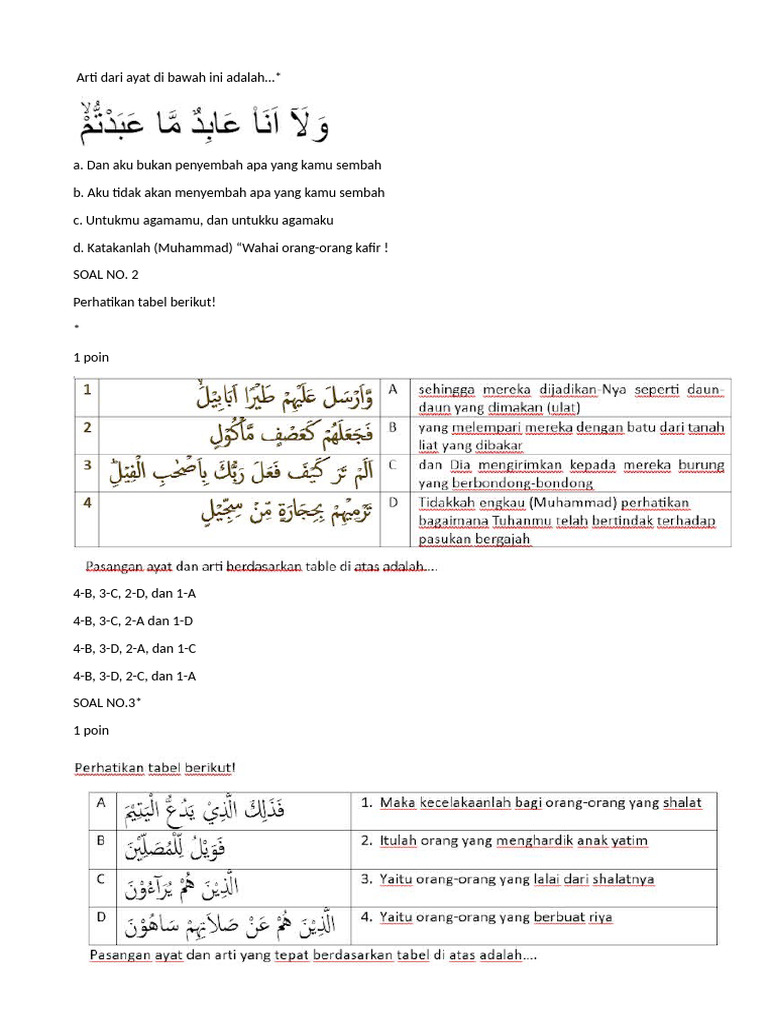 Arti dari ayat di bawah ini adalah...*
وَلَآ اَنَا۠ عَابِدٌ مَّا عَبَدْتُّمْۙ
a. Dan aku bukan penyembah apa yang kamu sembah
b. Aku tidak akan menyembah apa yang kamu sembah
c. Untukmu agamamu, dan untukku agamaku
d. Katakanlah (Muhammad) “Wahai orang-orang kafir !
SOAL NO. 2
Perhatikan tabel berikut!
*
1 poin
1 وَّاَرْسَلَ عَلَيْهِمْ طَيْرًا اَبَابِيْلَۙ A sehingga mereka dijadikan-Nya seperti daun-
daun yang dimakan (ulat)
2 فَجَعَلَهُمْ كَعَصْفٍ مَّأْكُوْلٍ B yang melempari mereka dengan batu dari tanah
liat yang dibakar
3 اَلَمْ تَرَ كَيْفَ فَعَلَ رَبُّكَ بِاَصْحٰبِ الْفِيْلِۗ C dan Dia mengirimkan kepada mereka burung
yang berbondong-bondong
4 تَرْمِيْهِمْ بِحِجَارَةٍ مِّنْ سِجِّيْلٍ D Tidakkah engkau (Muhammad) perhatikan
bagaimana Tuhanmu telah bertindak terhadap
pasukan bergajah
Pasangan ayat dan arti berdasarkan table di atas adalah....
4-B, 3-C, 2-D, dan 1-A
4-B, 3-C, 2-A dan 1-D
4-B, 3-D, 2-A, dan 1-C
4-B, 3-D, 2-C, dan 1-A
SOAL NO.3*
1 poin
Perhatikan tabel berikut!
A فَذٰلِكَ الَّذِيْ يَدُعُّ الْيَتِيْمَ 1. Maka kecelakaanlah bagi orang-orang yang shalat
B فَوَيْلٌ لِّلْمُصَلِّيْنَ 2. Itulah orang yang menghardik anak yatim
C الَّذِيْنَ هُمْ يُرَآءُوْنَ 3. Yaitu orang-orang yang lalai dari shalatnya
D الَّذِيْنَ هُمْ عَنْ صَلَاتِهِمْ سَاهُوْنَ 4. Yaitu orang-orang yang berbuat riya
Pasangan ayat dan arti yang tepat berdasarkan tabel di atas adalah....